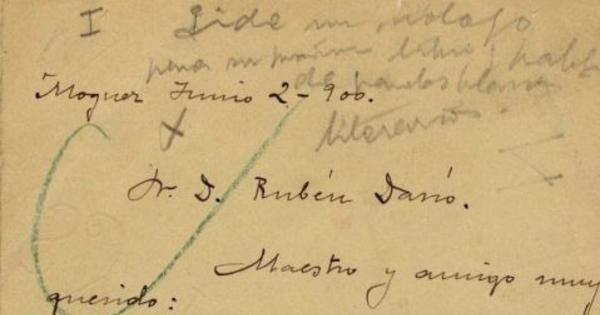 I Pide un prólogo
para su próximo libro; habla
de
Moguer Junio 2-900.
literarios.
X
Sr. D. Rubén Darío.
Maestro y amigo muy
querido: